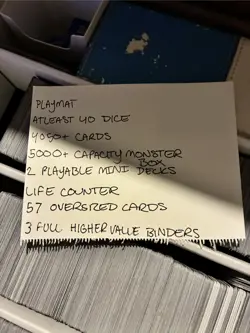 PLAYMAT
ATLEAST 40 DICE
4050+ CARDS
5000+ CAPACITY MONSTER
BOX
2 PLAYABLE MINI DECKS
LIFE COUNTER
57 OVERSIZED CARDS
3 FULL HIGHER VALUE BINDERS